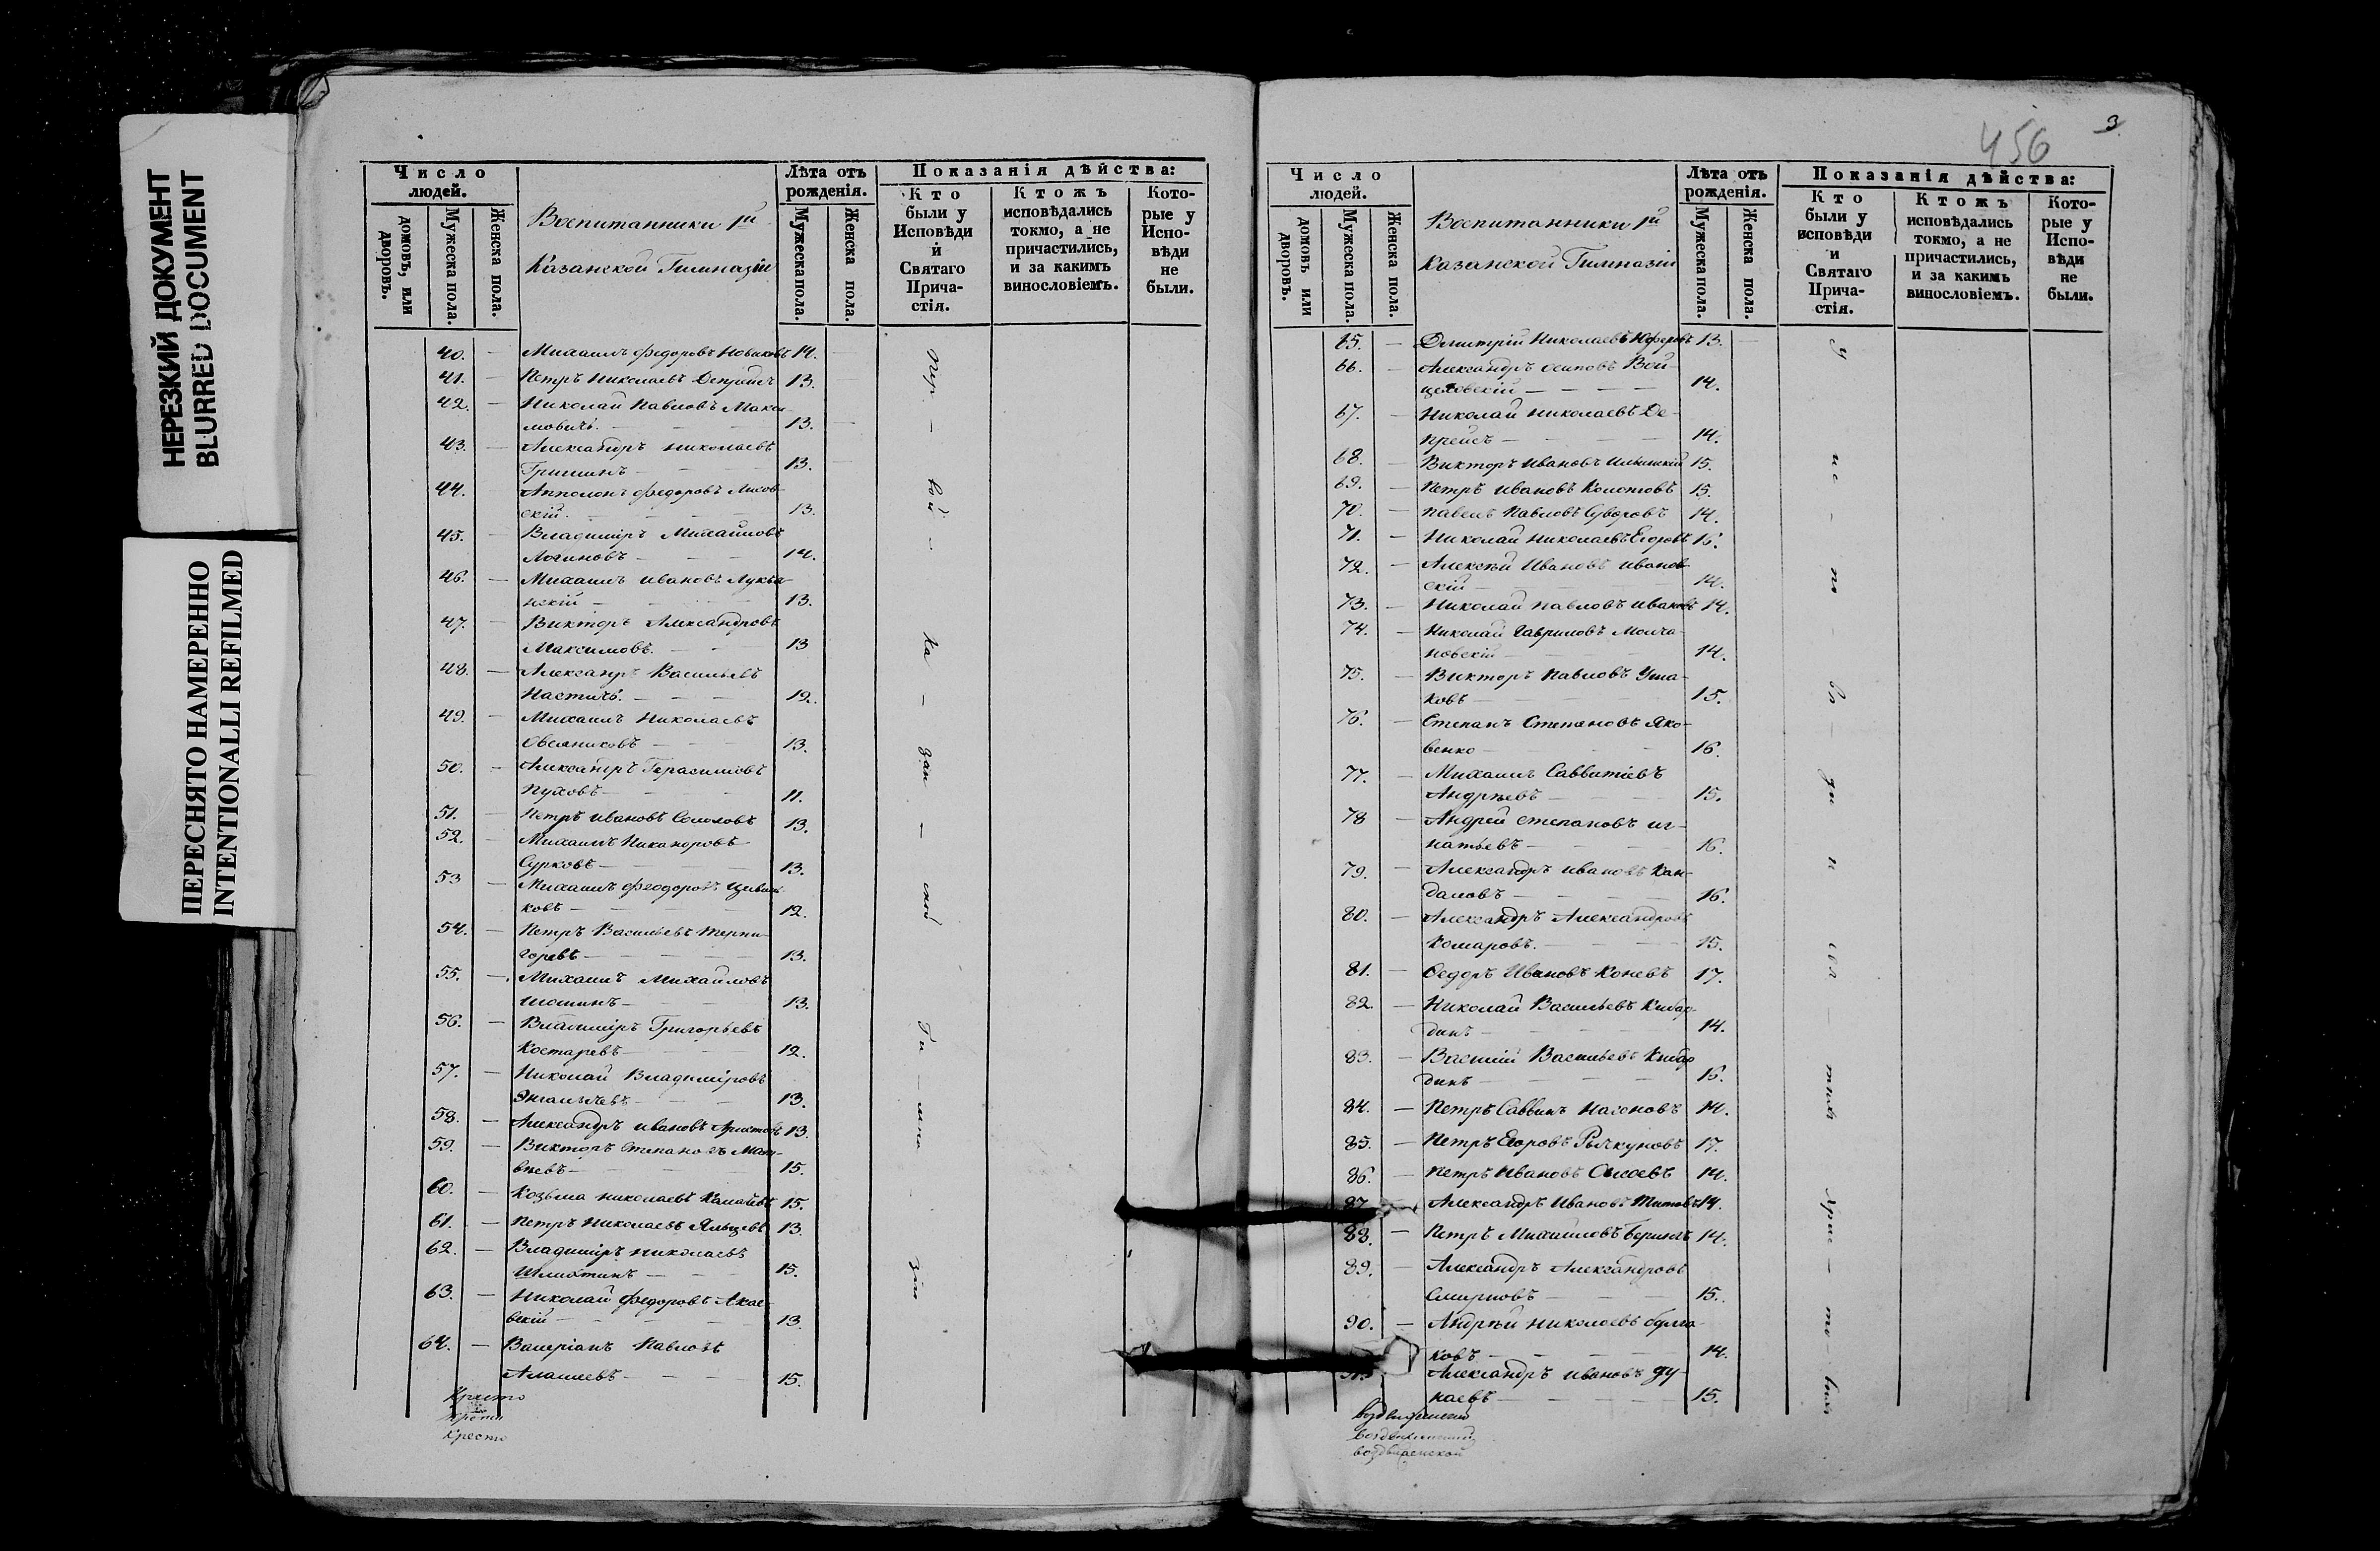 НЕРЕЗКИЙ ДОКУМЕНТ
BLURRED DOCUMENT
ПЕРЕСНЯТО НАМЕРЕННО
INTENTIONALLI REFILMED
Число людей.
домовъ, или дворовъ.
Мужеска пола.
Женска пола.
Воспитанники 1й
Казанской Гимназіи
Лѣта отъ рожденія.
Мужеска пола.
Женска пола.
Показанія дѣйства:
Кто были у Исповѣди и Святаго Прича-стія.
Ктожъ исповѣдались токмо, а не причастились, и за какимъ винословіемъ.
Кото-рые у Испо-вѣди не были.
40. — Михаилъ Федоровъ Новиковъ 14.
41. — Петръ Николаевъ Депрейсъ 13.
42. — Николай Павловъ Макси-
мовичъ. 13.
43. — Александръ Николаевъ
Гришинъ 13.
44. — Апполонъ Федоровъ Лисов-
скій. 13.
45. — Владиміръ Михайловъ
Логиновъ 14.
46. — Михаилъ Ивановъ Лукъя-
нскій 13.
47. — Викторъ Александровъ
Максимовъ. 13
48. — Александръ Васильевъ
Настичъ. 12.
49. — Михаилъ Николаевъ
Овсяниковъ 13.
50. — Александръ Герасимовъ
Пуховъ 11.
51. — Петръ Ивановъ Соколовъ 13.
52. — Михаилъ Никаноровъ
Сурковъ 13.
53 — Михаилъ Феодоровъ
ковъ 12.
54. — Петръ Васильевъ Терпи-
горевъ 13.
55. — Михаилъ Михайловъ
Шошинъ 13.
56. — Владиміръ Григорьевъ
Костаревъ 12.
57. — Николай Владиміровъ
Энгалычевъ 13.
58. — Александръ Ивановъ Аристовъ 13.
59. — Викторъ Степановъ Мат-
вѣевъ 15.
60. — Козьма Николаевъ 15.
61. — Петръ Николаевъ Яльцевъ 13.
62. — Владиміръ Николаевъ
Шлихтинъ 15.
63. — Николай Федоровъ Акае-
вскій 13.
64. — Валеріанъ Павловъ
Алашеевъ 15.
пер — вой — ка — зан — ской — Ги — мна — зіи
Кресто
Кресто
Кресто
456
3.
Число людей.
домовъ или дворовъ.
Мужеска пола.
Женска пола.
Воспитанники 1й
Казанской Гимназіи
Лѣта отъ рожденія.
Мужеска пола.
Женска пола.
Показанія дѣйства:
Кто были у исповѣди и Святаго Прича-стія.
Ктожъ исповѣдались токмо, а не причастились, и за какимъ винословіемъ.
Кото-рые у Испо-вѣди не были.
65. — Дмитрій Николаевъ 13.
66. — Александръ Осиповъ Вой-
цеховскій 14.
67. — Николай Николаевъ Де-
прейсъ 14.
68. — Викторъ Ивановъ Ильинскій 15.
69. — Петръ Ивановъ 15.
70. — Павелъ Павловъ Суворовъ 14.
71. — Николай Николаевъ Егоровъ 15.
72. — Алексѣй Ивановъ Иванов-
скій 14.
73. — Николай Павловъ Ивановъ 14.
74. — Николай Гавриловъ Молча-
новскій 14.
75. — Викторъ Павловъ Уша-
ковъ 15.
76. — Степанъ Степановъ Яко-
венко 16.
77. — Михаилъ Савватіевъ
Андреевъ 15.
78 — Андрей Степановъ Иг-
натьевъ 16.
79. — Александръ Ивановъ Кан-
даловъ 16.
80. — Александръ Александровъ
Комаровъ. 15.
81. — Федоръ Ивановъ Коневъ 17.
82. — Николай Васильевъ Кибар-
динъ 14.
83. — Василій Васильевъ Кибар
динъ 16.
84. — Петръ Саввинъ Насоновъ 14.
85. — Петръ Егоровъ Рычкуновъ 17.
86. — Петръ Ивановъ Сысоевъ 14.
87. Александръ Ивановъ Титовъ 14.
88. — Петръ Михайловъ 14.
89. — Александръ Александровъ
Смирновъ 15.
90. — Андрей Николаевъ Булга-
ковъ 14.
Александръ Ивановъ Ду-
каевъ 15.
у ис — по — вѣ — ди и свя — тыхъ Хрис — то — выхъ
воздвиженской
воздвиженской
воздвиженской